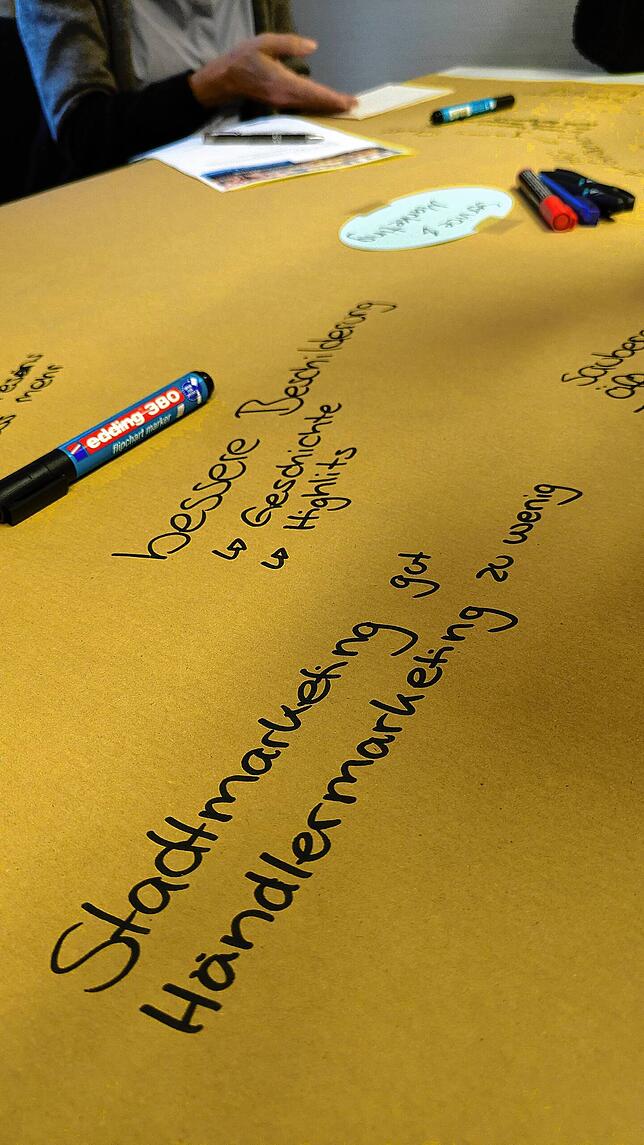 Service &
Marketing
bessere Beschilderung
↳ Geschichte
↳ Highlits
Stadtmarketing gut
Händlermarketing zu wenig
mehr
edding 380
flipchart marker